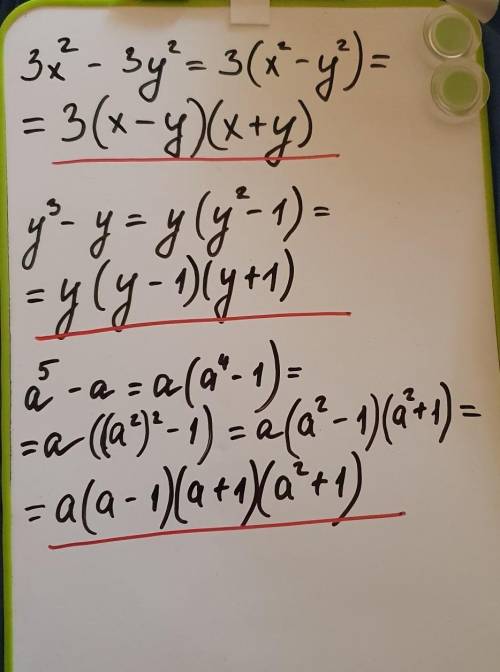 3x² - 3y² = 3(x² - y²) =
= 3(x - y)(x + y)
y³ - y = y(y² - 1) =
= y(y - 1)(y + 1)
a⁵ - a = a(a⁴ - 1) =
= a((a²)² - 1) = a(a² - 1)(a² + 1) =
= a(a - 1)(a + 1)(a² + 1)